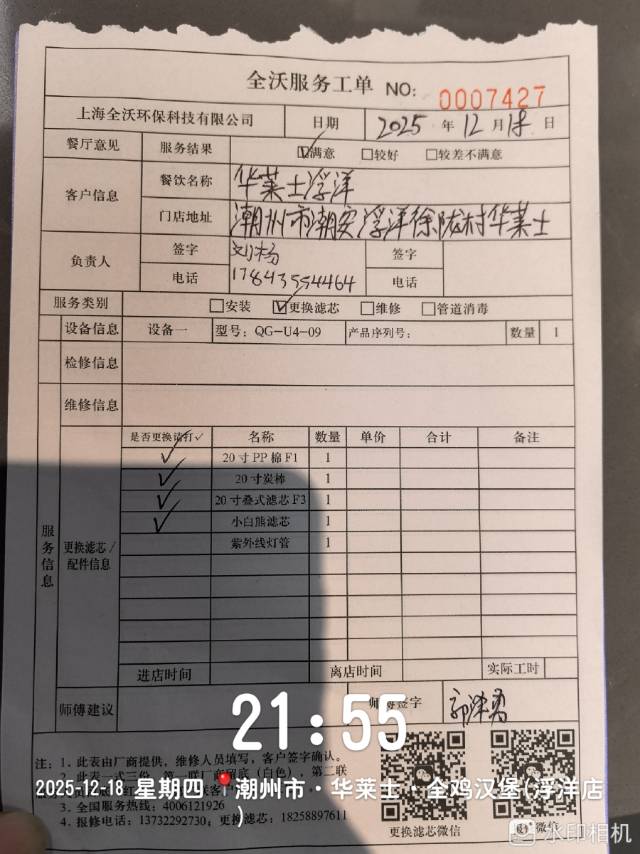 全沃服务工单 NO: 0007427
上海全沃环保科技有限公司 日期 2025 年 12 月 18 日
餐厅意见 服务结果 ☑满意 □较好 □较差不满意
客户信息 餐饮名称 华莱士浮洋
门店地址 潮州市潮安浮洋徐陇村华莱士
负责人 签字 刘杨 签字
电话 17843554464 电话
服务类别 □安装 ☑更换滤芯 □维修 □管道消毒
设备信息 设备一 型号: QG-U4-09 产品序列号: 数量 1
检修信息
维修信息
服务信息
更换滤芯/配件信息
是否更换请打✓ 名称 数量 单价 合计 备注
✓ 20寸PP棉F1 1
✓ 20寸炭棒 1
✓ 20寸叠式滤芯F3 1
✓ 小白熊滤芯 1
紫外线灯管 1
进店时间 离店时间 实际工时
师傅建议 师傅签字
21:55
注: 1. 此表由厂商提供, 维修人员填写, 客户签字确认。
2. 此表一式三份, 第一联厂 底(白色), 第二联
2025-12-18 星期四 潮州市·华莱士·全鸡汉堡(浮洋店)
3. 全国服务热线: 4006121926
4. 报修电话: 13732292730; 更换滤芯: 18258897611
更换滤芯微信 微信
水印相机